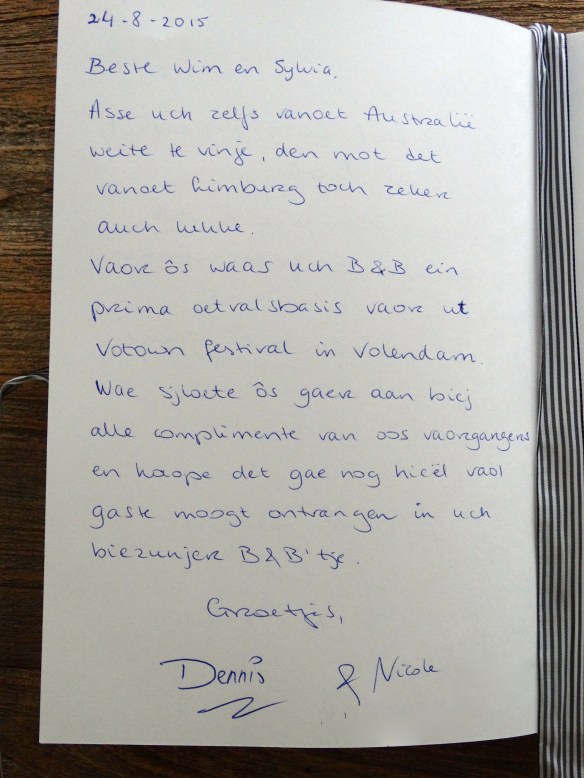 24-8-2015
Beste Wim en Sylvia.
Asse uch zelfs vanoet Australië
weite te vinje, den mot det
vanoet Limburg toch zeker
auch lukke.
Vaor ôs waas uch B&B ein
prima oetvalsbasis vaor ut
Votown festival in Volendam.
Wae sjloete ôs gaer aan biej
alle complimente van oos vaorgangers
en haope det gae nog hieël vaol
gaste moogt ontvangen in uch
biezunjer B&B'tje.
Groetjes,
Dennis & Nicole